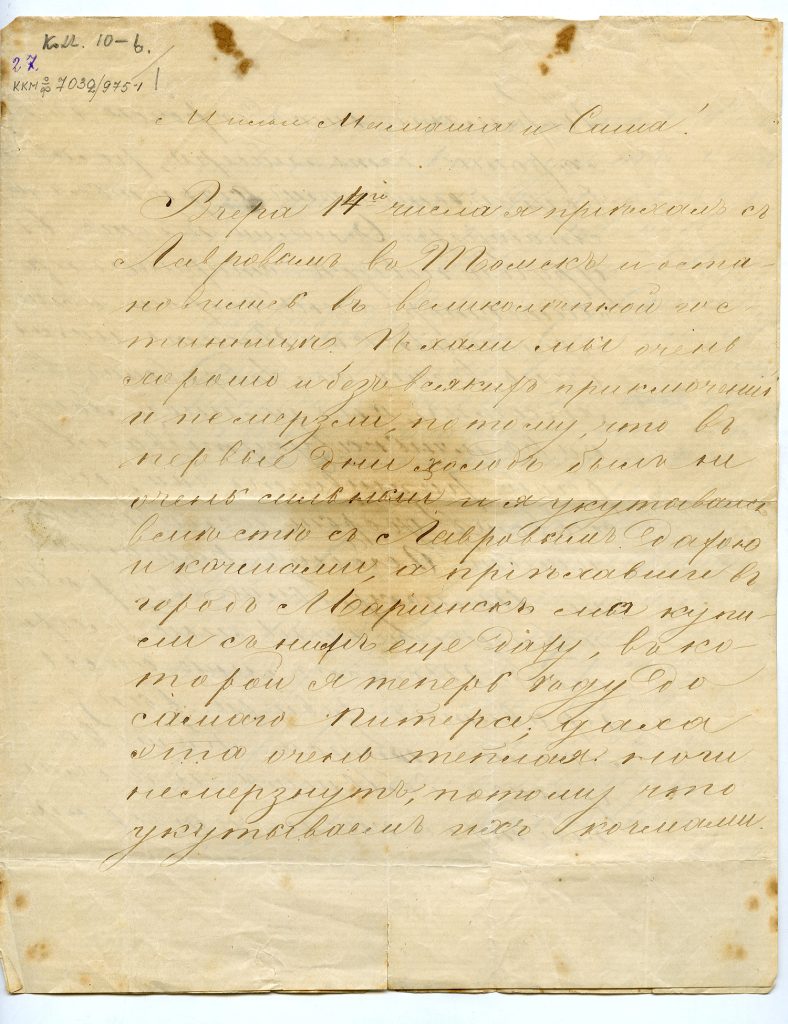 К.М. 10-6.
27
ККМ оф 7030/975-1
Милые Мамаша и Саша!
Вчера 14го числа я пріѣхалъ съ
Лавровымъ въ Томскъ и оста-
новились въ великолѣпной гос-
тинницѣ. Ѣхали мы очень
хорошо и безъ всякихъ приключеній
и не мерзли, потому, что въ
первые дни холодъ былъ не
очень сильный и я укутывался
вмѣстѣ съ Лавровымъ дахою
и кочмами, а пріѣхавши въ
городъ Маріинскъ мы купи-
ли съ нимъ еще даху, въ ко-
торой я теперь ѣду до
самаго Питера; даха
эта очень теплая. ноги
немерзнутъ, потому что
укутываемъ ихъ кочмами.